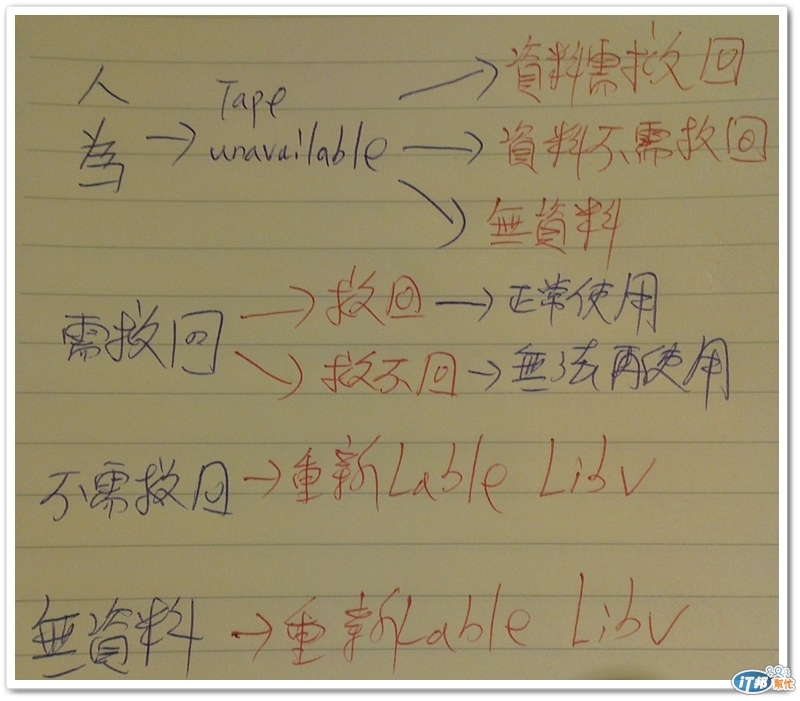 人為 → Tape unavailable → 資料需救回
→ 資料不需救回
→ 無資料
需救回 → 救回 → 正常使用
→ 救不回 → 無法再使用
不需救回 → 重新Lable Libv
無資料 → 重新Lable Libv
iT邦幫忙